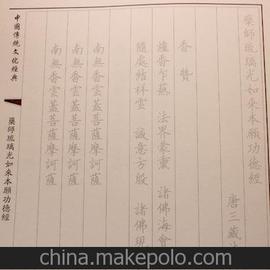 藥師琉璃光如來本願功德經
唐三藏
香讚
爐香乍爇 法界蒙熏 諸佛海會
隨處結祥雲 誠意方殷 諸佛現
南無香雲蓋菩薩摩訶薩
南無香雲蓋菩薩摩訶薩
南無香雲蓋菩薩摩訶薩
中國傳統文化經典
藥師琉璃光如來本願功德經
china.makepolo.com